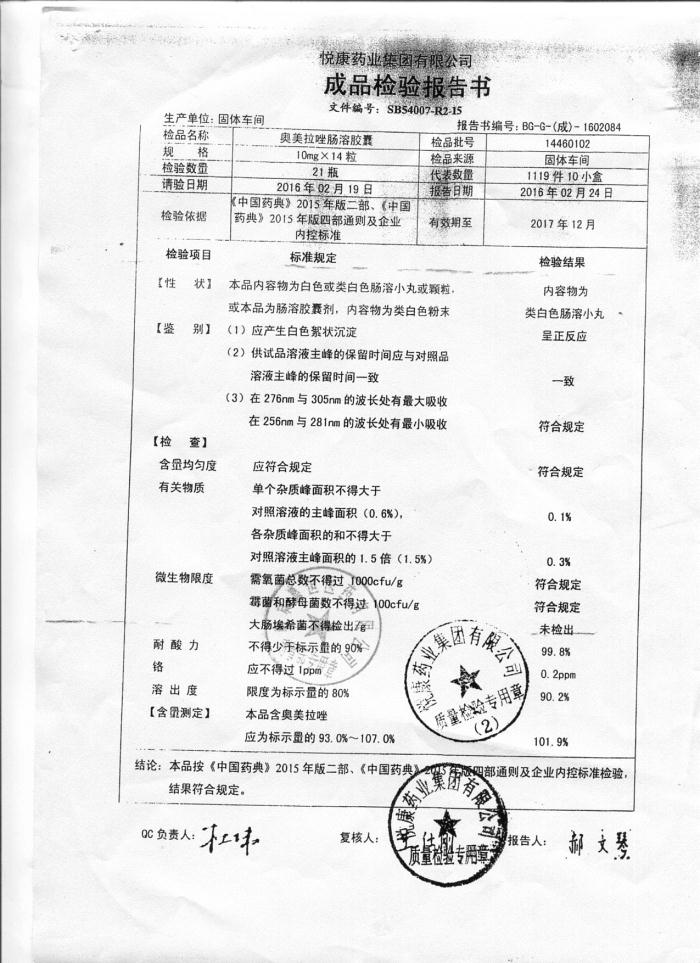 悦康药业集团有限公司
成品检验报告书
文件编号：SB54007-R2-15
生产单位：固体车间 报告书编号：BG-G-(成)-1602084
检品名称 奥美拉唑肠溶胶囊 检品批号 14460102
规 格 10mg×14粒 检品来源 固体车间
检验数量 21瓶 代表数量 1119件10小盒
请验日期 2016年02月19日 报告日期 2016年02月24日
检验依据 《中国药典》2015年版二部、《中国药典》2015年版四部通则及企业内控标准 有效期至 2017年12月
检验项目 标准规定 检验结果
【性 状】 本品内容物为白色或类白色肠溶小丸或颗粒， 内容物为
或本品为肠溶胶囊剂，内容物为类白色粉末 类白色肠溶小丸
【鉴 别】 （1）应产生白色絮状沉淀 呈正反应
（2）供试品溶液主峰的保留时间应与对照品
溶液主峰的保留时间一致 一致
（3）在276nm与305nm的波长处有最大吸收
在256nm与281nm的波长处有最小吸收 符合规定
【检 查】
含量均匀度 应符合规定 符合规定
有关物质 单个杂质峰面积不得大于
对照溶液的主峰面积（0.6%）， 0.1%
各杂质峰面积的和不得大于
对照溶液主峰面积的1.5倍（1.5%） 0.3%
微生物限度 需氧菌总数不得过1000cfu/g 符合规定
霉菌和酵母菌数不得过100cfu/g 符合规定
大肠埃希菌不得检出/g 未检出
耐 酸 力 不得少于标示量的90% 99.8%
铬 应不得过1ppm 0.2ppm
溶 出 度 限度为标示量的80% 90.2%
【含量测定】 本品含奥美拉唑
应为标示量的93.0%～107.0% 101.9%
悦康药业集团有限公司
质量检验专用章
（2）
结论：本品按《中国药典》2015年版二部、《中国药典》2015年版四部通则及企业内控标准检验，
结果符合规定。
QC负责人： 复核人： 报告人：郝文琴
悦康药业集团有限公司
质量检验专用章